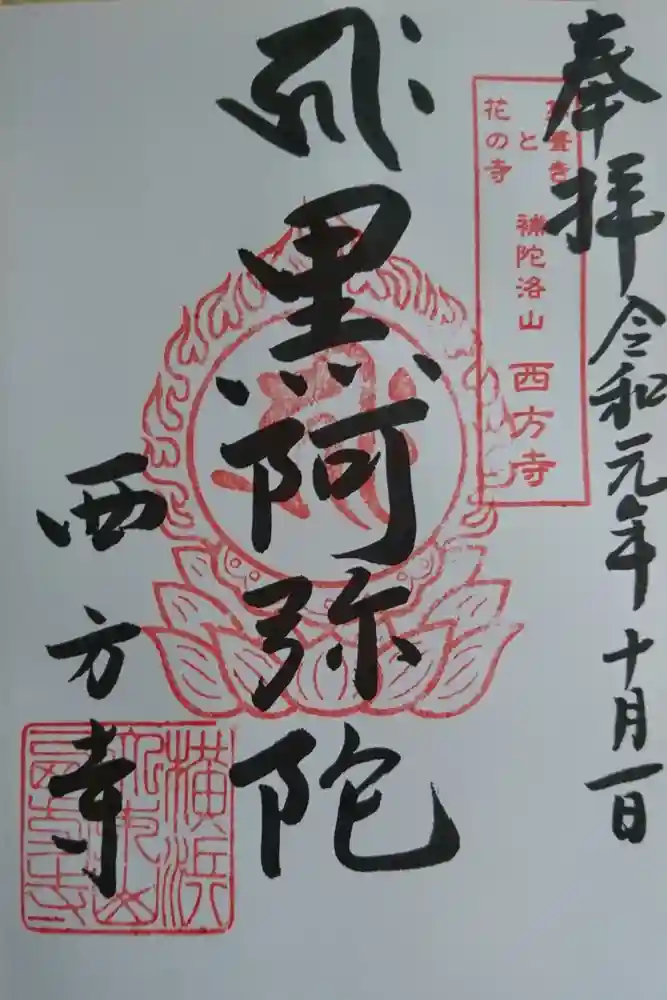 奉拝 令和元年十月一日
葺き
と
花の寺
補陀洛山 西方寺
黒阿弥陀
西方寺
横浜
西方寺